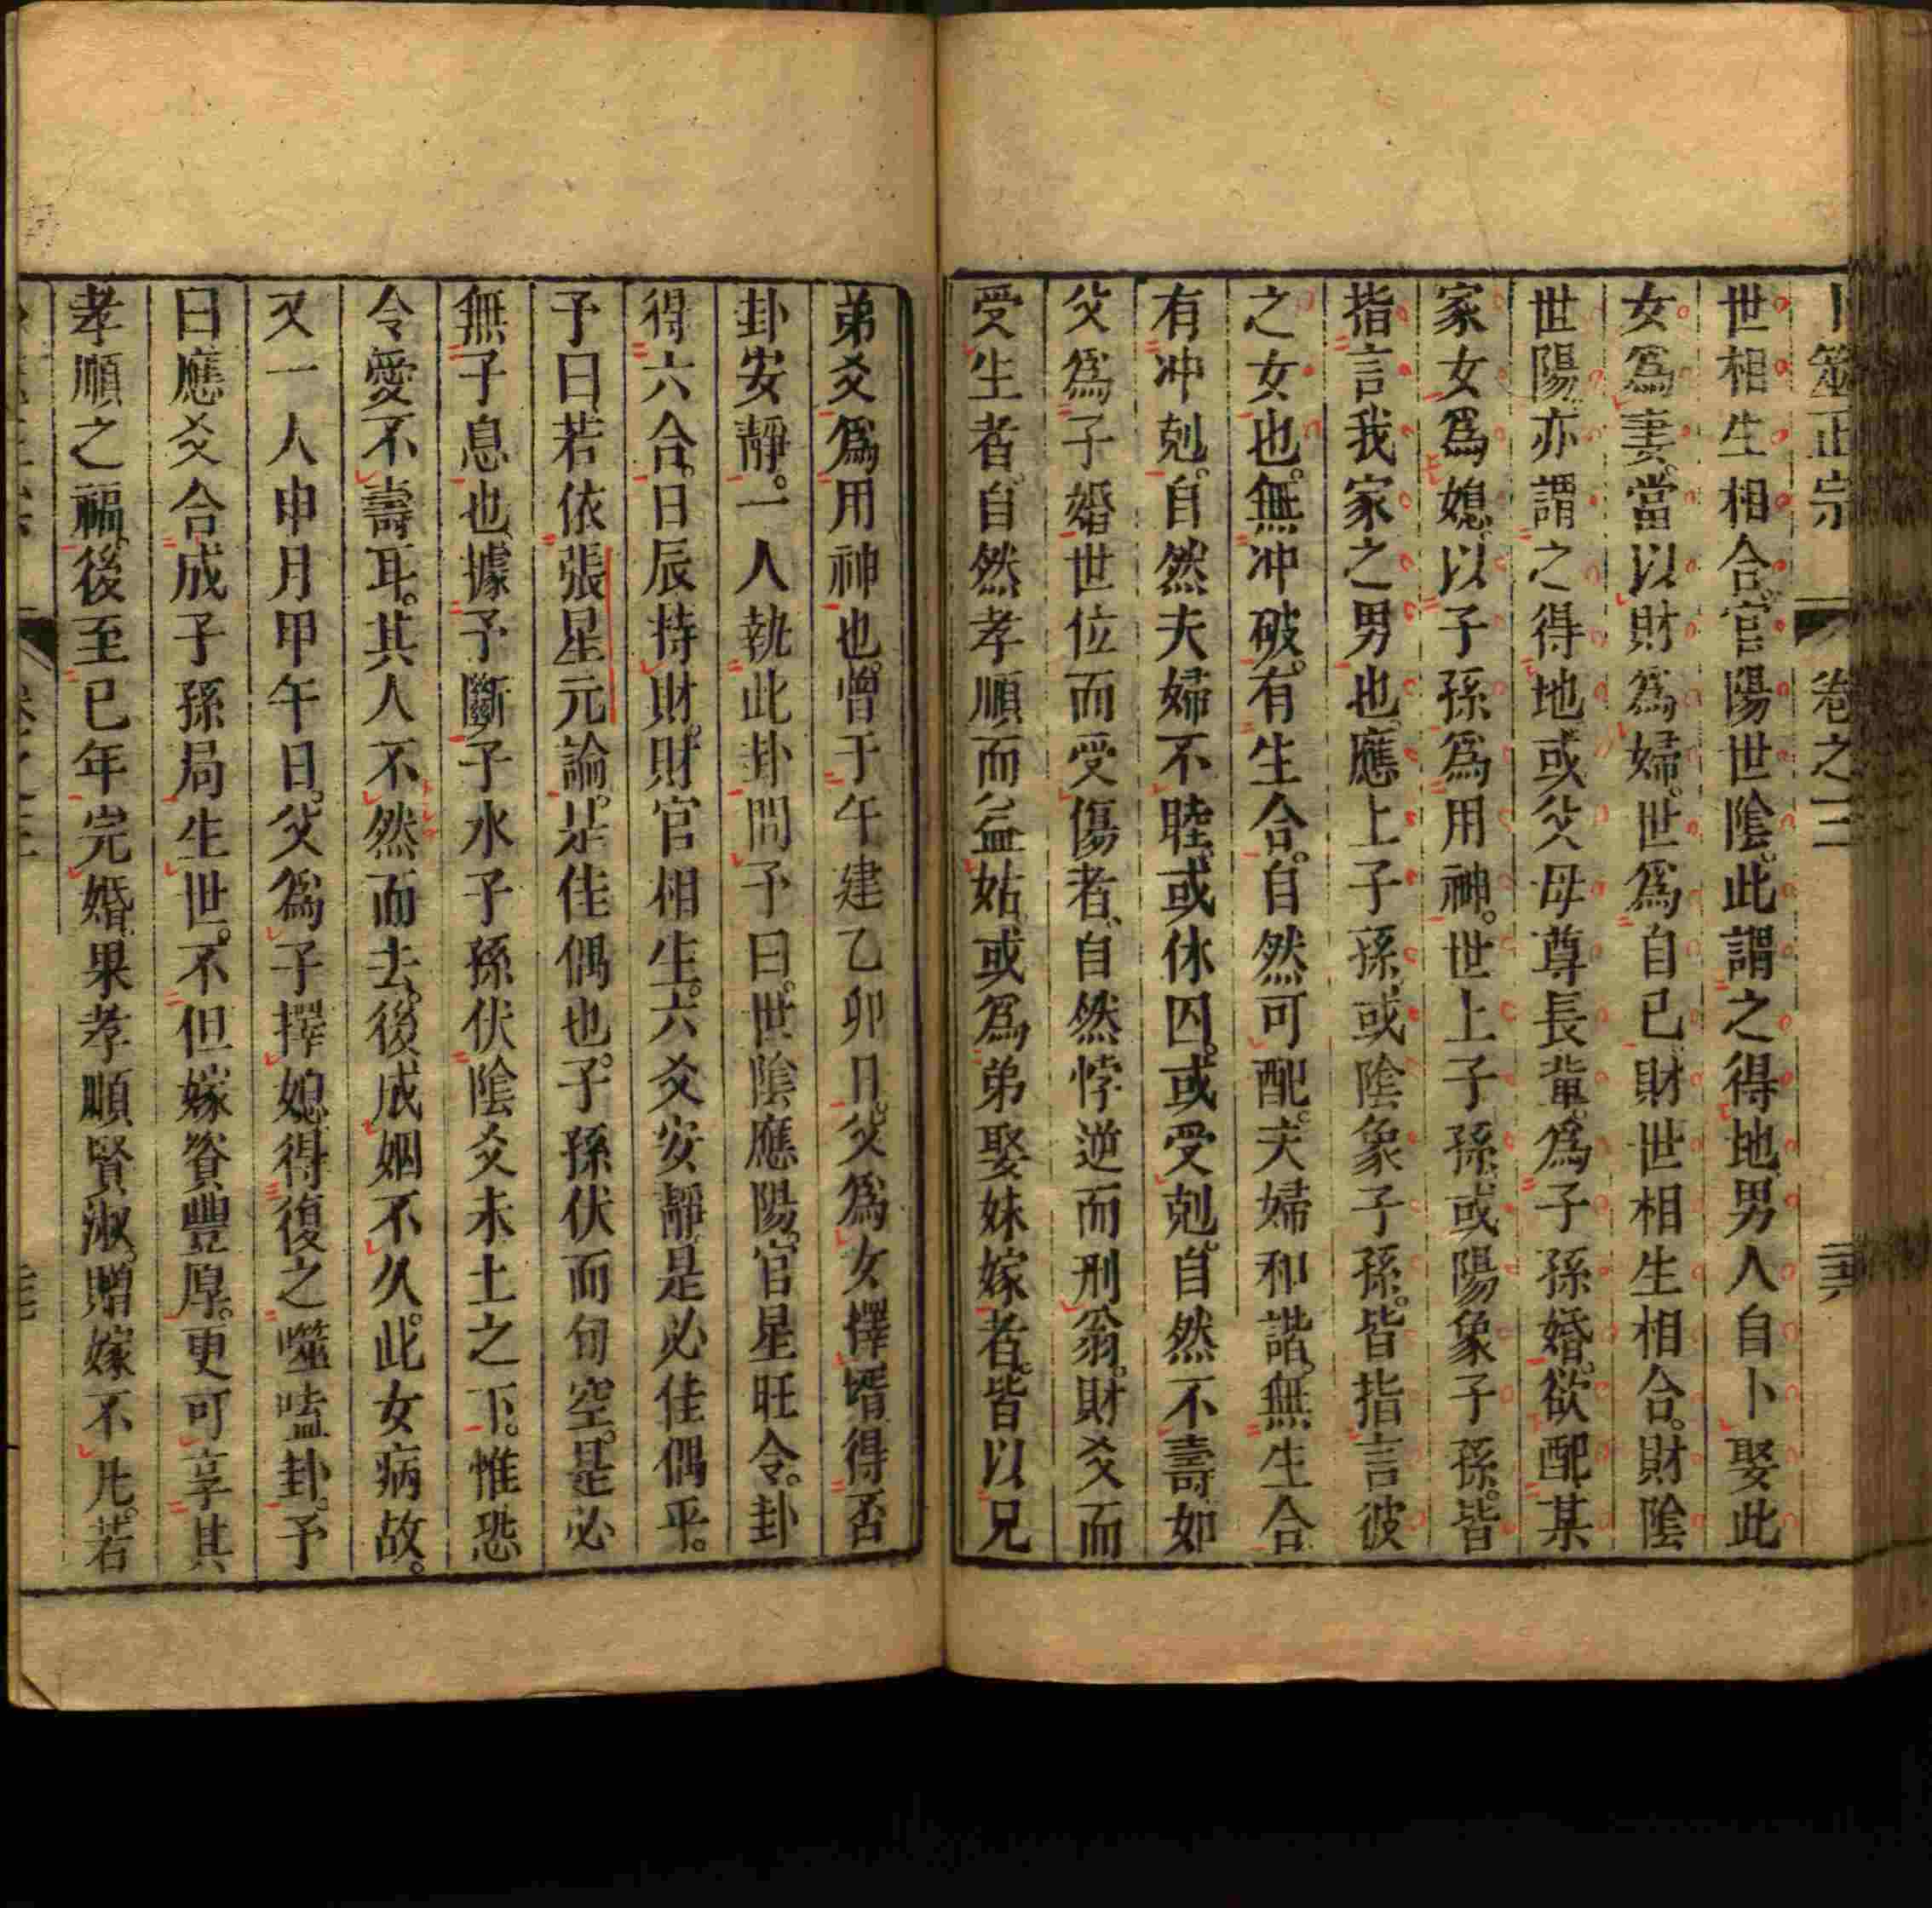 卜筮正宗 卷之三 三六
世相生相合官陽世陰此謂之得地男人自卜娶此
女爲妻當以財爲婦世爲自已財世相生相合財陰
世陽亦謂之得地或父母尊長輩爲子孫婚欲配某
家女爲媳以子孫爲用神世上子孫或陽象子孫皆
指言我家之男也應上子孫或陰象子孫皆指言彼
之女也無冲破有生合自然可配夫婦和諧無生合
有冲剋自然夫婦不睦或休囚或受剋自然不壽如
父爲子婚世位而受傷者自然悖逆而刑翁財爻而
受生者自然孝順而益姑或爲弟娶妹嫁者皆以兄
弟爻爲用神也曾于午建乙卯日父爲女擇壻得否
卦安靜一人執此卦問予曰世陰應陽官星旺令卦
得六合日辰持財財官相生六爻安靜是必佳偶乎
予曰若依張星元論是佳偶也子孫伏而旬空是必
無子息也據予斷子水子孫伏陰爻未土之下惟恐
令愛不壽耳其人不然而去後成姻不久此女病故
又一人申月甲午日父爲子擇媳得復之噬嗑卦予
曰應爻合成子孫局生世不但嫁資豐厚更可享其
孝順之福後至巳年完婚果孝順賢淑贈嫁不凡若